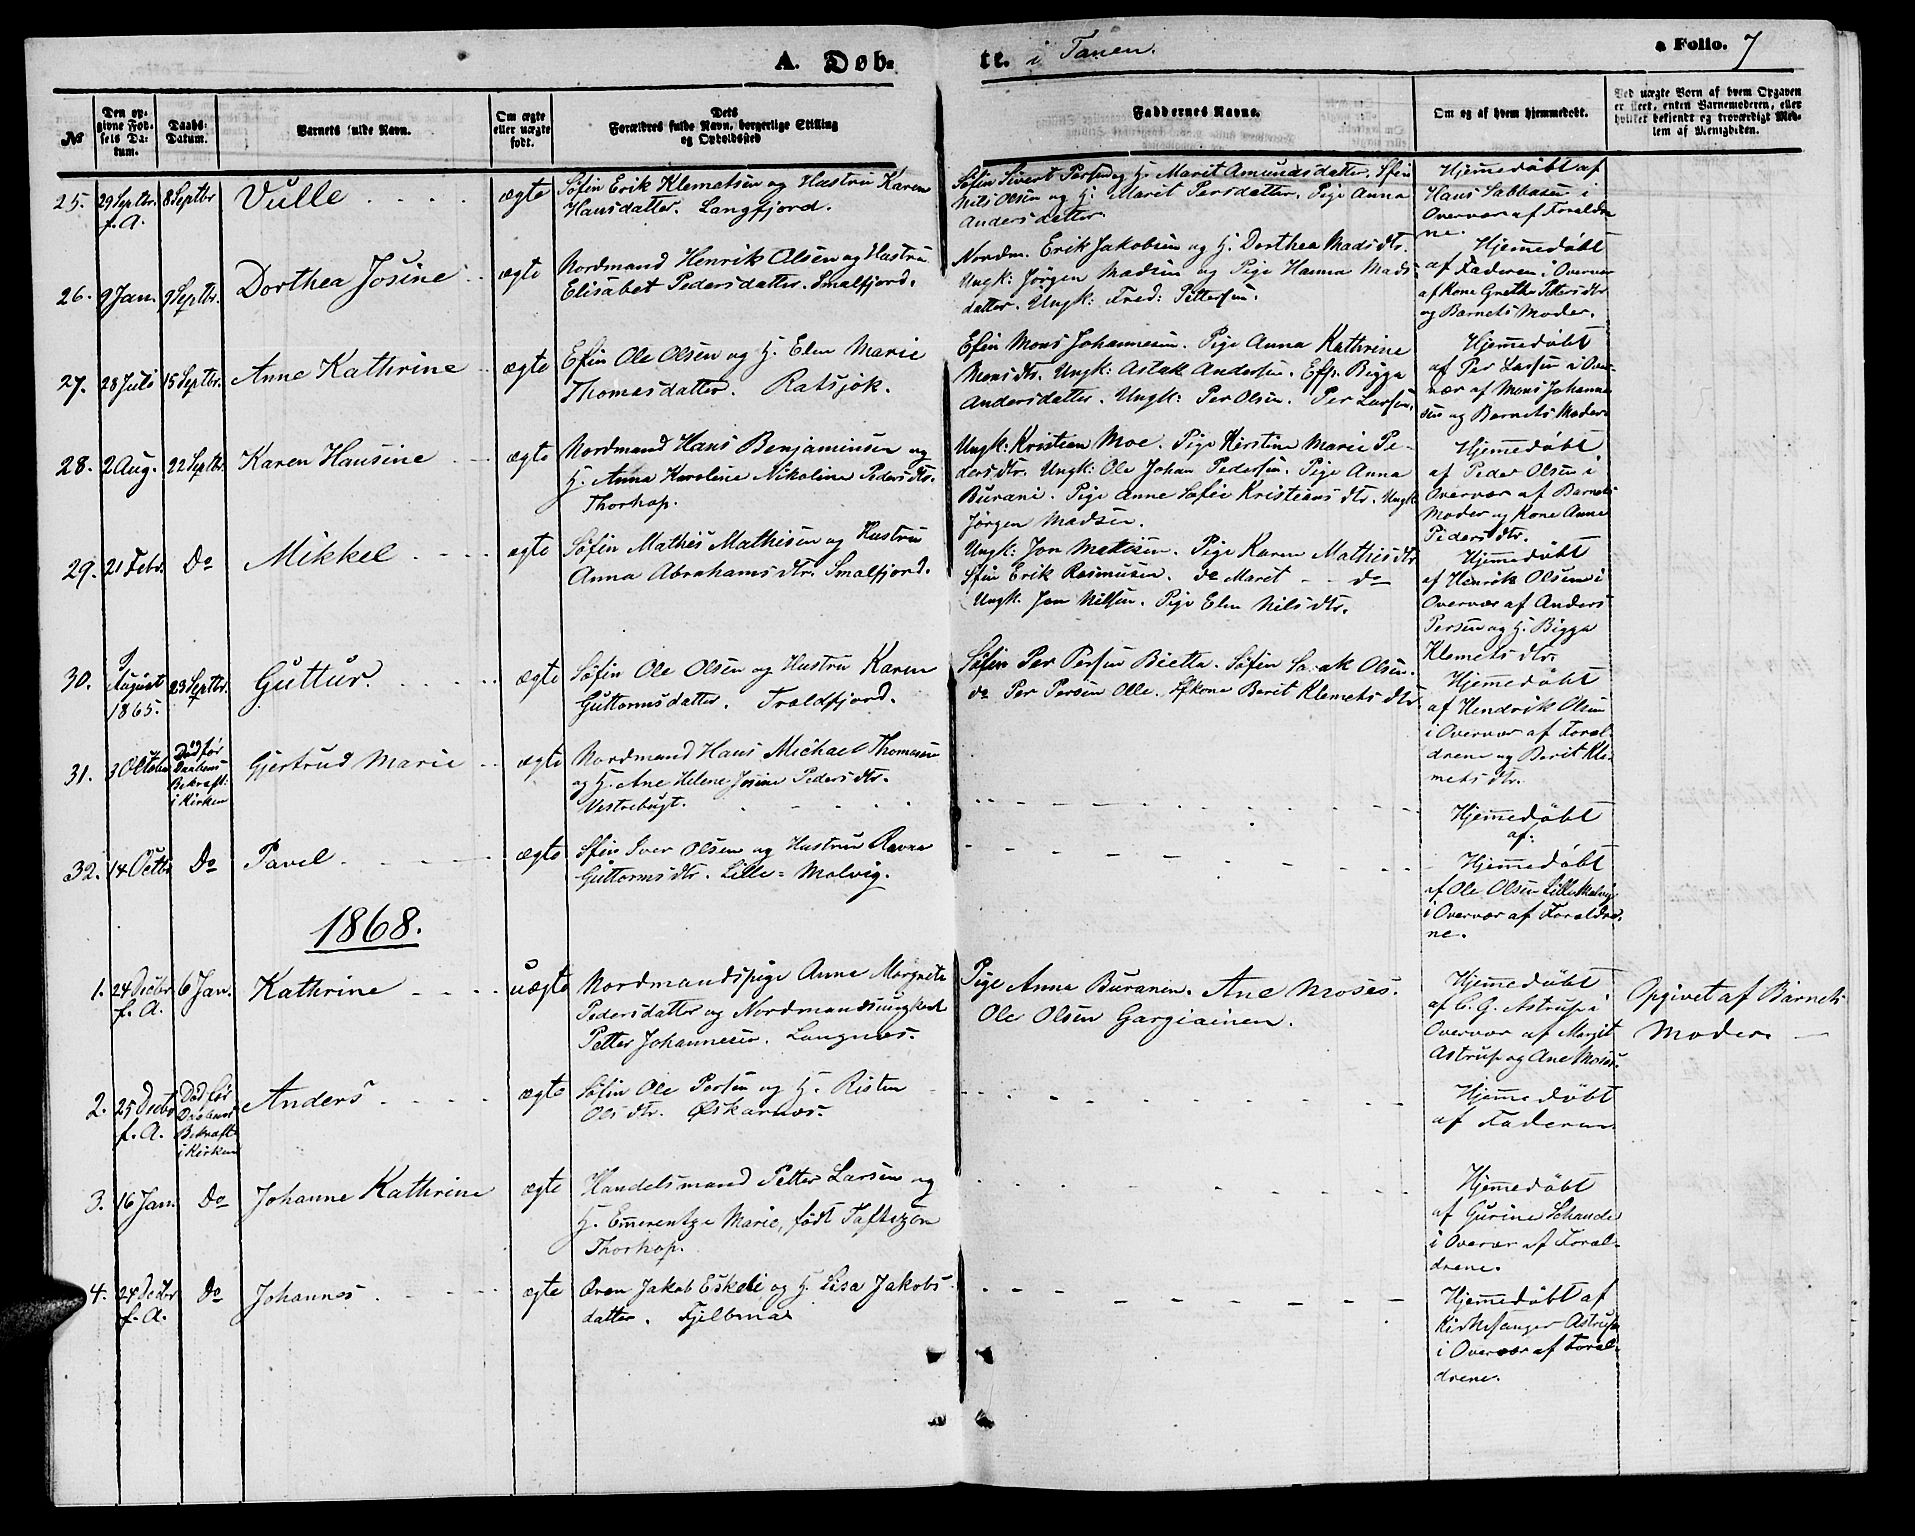 A. Døb- te. i Tanen. Folio. 7
No
Den opgivne Fødsels Datum.
Daabs-Datum.
Barnets fulde Navn.
Om ægte eller uægte født.
Dets Forældres fulde Navn, borgerlige Stilling og Opholdssted
Faddernes Navne.
Om og af hvem hjemmedøbt.
Ved uægte Børn af hvem Opgaven er skeet, enten Barnemoderen, eller hvilket bekjendt og troværdigt Medlem af Menigheden.
25. 29 Septbr. 8 Septbr Vulle ægte Søfin Erik Klemetsen og Hustru Karen
f. A. Hansdatter. Langfjord.
Søfin Sivert Persen og H. Marit Amundsdatter. Sfin
Nils Olsen og H. Marit Persdatter. Pige Anna
Andersdatter.
Hjemmedøbt af
Hans Sabbasen i
Overvær af Forældre
ne.
26. 9 Jan. 9 Septbr. Dorthea Josine ægte Nordmand Henrik Olsen og Hustru
Elisabet Pedersdatter. Smalfjord.
Nordm. Erik Jakobsen og H. Dorthea Madsdtr.
Ungk: Jørgen Madsen og Pige Hanna Mads
datter. Ungk: Fred: Pettersen.
Hjemmedøbt
af Faderen i Overvær
af Kone Grethe Pettersdtr
og Barnets Moder.
27. 28 Juli 15 Septbr. Anne Kathrine ægte Efin Ole Olsen og H. Elen Marie
Thomasdatter. Ratsjok.
Efin Mons Johannesen. Pige Anna Kathrine
Monsdtr. Ungk: Aslak Andersen. Efp. Bigga
Andersdatter. Ungk: Per Olsen. Per Larsen.
Hjemmedøbt
af Per Larsen i Over-
vær af Mons Johanne
sen og Barnets Moder
28. 2 Aug. 22 Septbr. Karen Hansine ægte Nordmand Hans Benjaminsen og
H. Anna Karoline Nikoline Pedersdtr.
Thorhop.
Ungk: Kristian Moe. Pige Kirstine Marie Pe-
dersdtr. Ungk: Ole Johan Pedersen. Pige Anna
Burani. Pige Anne Sofie Kristiansdtr. Ungk
Jørgen Madsen.
Hjemmedøbt
af Peder Olsen i
Overvær af Barnets
Moder og Kone Anne
Pedersdtr.
29. 21 Febr. Do Mikkel ægte Søfin Mathis Mathisen og Hustru
Anna Abrahamsdtr. Smalfjord.
Ungk: Jon Matisen. Pige Karen Mathisdtr
Sfin Erik Rasmusen. do Maret - - do
Ungk. Jon Nilsen. Pige Elen Nilsdtr.
Hjemmedøbt
af Henrik Olsen i
Overvær af Anders
Persen og H. Bigga
Klemetsdtr.
30. 9 August 1865. 23 Septbr. Guttur. ægte Søfin Ole Olsen og Hustru Karen
Guttormsdatter. Troldfjord.
Søfin Per Persen Bietta. Søfin Isak Olsen.
do Per Persen Olle. Sfkone Berit Klemetsdtr.
Hjemmedøbt
af Hendrik Olsen
i Overvær af Foræl-
drene og Berit Kle-
metsdtr.
31. 3 October Død før Daabens Bekræft: i Kirken Gjertrud Marie ægte Nordmand Hans Michael Thomasen
og H. Ane Helene Josine Pedersdtr.
Vestrebugt.
Hjemmedøbt
af.
32. 14 Octbr Do Pavel ægte Sfin Iver Olsen og Hustru Ravna
Guttormsdtr. Lille-Molvig.
Hjemmedøbt
af Ole Olsen Lille Molvig
i Overvær af Forældre-
ne.
1868.
1. 24 Decbr f. A. 6 Jan. Kathrine uægte Nordmandspige Anna Margrete
Pedersdatter og Nordmandsungkarl
Petter Johannesen. Langnæs.
Pige Anna Buranen. Ane Moses.
Ole Olsen Gargiainen.
Hjemmedøbt
af C. G. Astrup i
Overvær af Margit
Astrup og Ane Moses.
Opgivet af Barnets
Moder.
2. 25 Decbr f. A. Død før Daabens Bekræft. i Kirken Anders ægte Søfin Ole Persen og H. Risten
Olsdtr. Øskarnæs.
Hjemmedøbt
af Faderen.
3. 16 Jan. Do Johanne Kathrine ægte Handelsmand Petter Larsen og
H. Emerentze Marie, født Taftezon
Thorhop.
Hjemmedøbt
af Gurine Schande
i Overvær af Foræl-
drene.
4. 24 Decbr f. A. Do Johannes ægte Qven Jakob Eskeli og H. Lisa Jakobs
datter. Fjelbma
Hjemmedøbt af
Kirkesanger Astrup
i Overvær af Foræl-
drene.